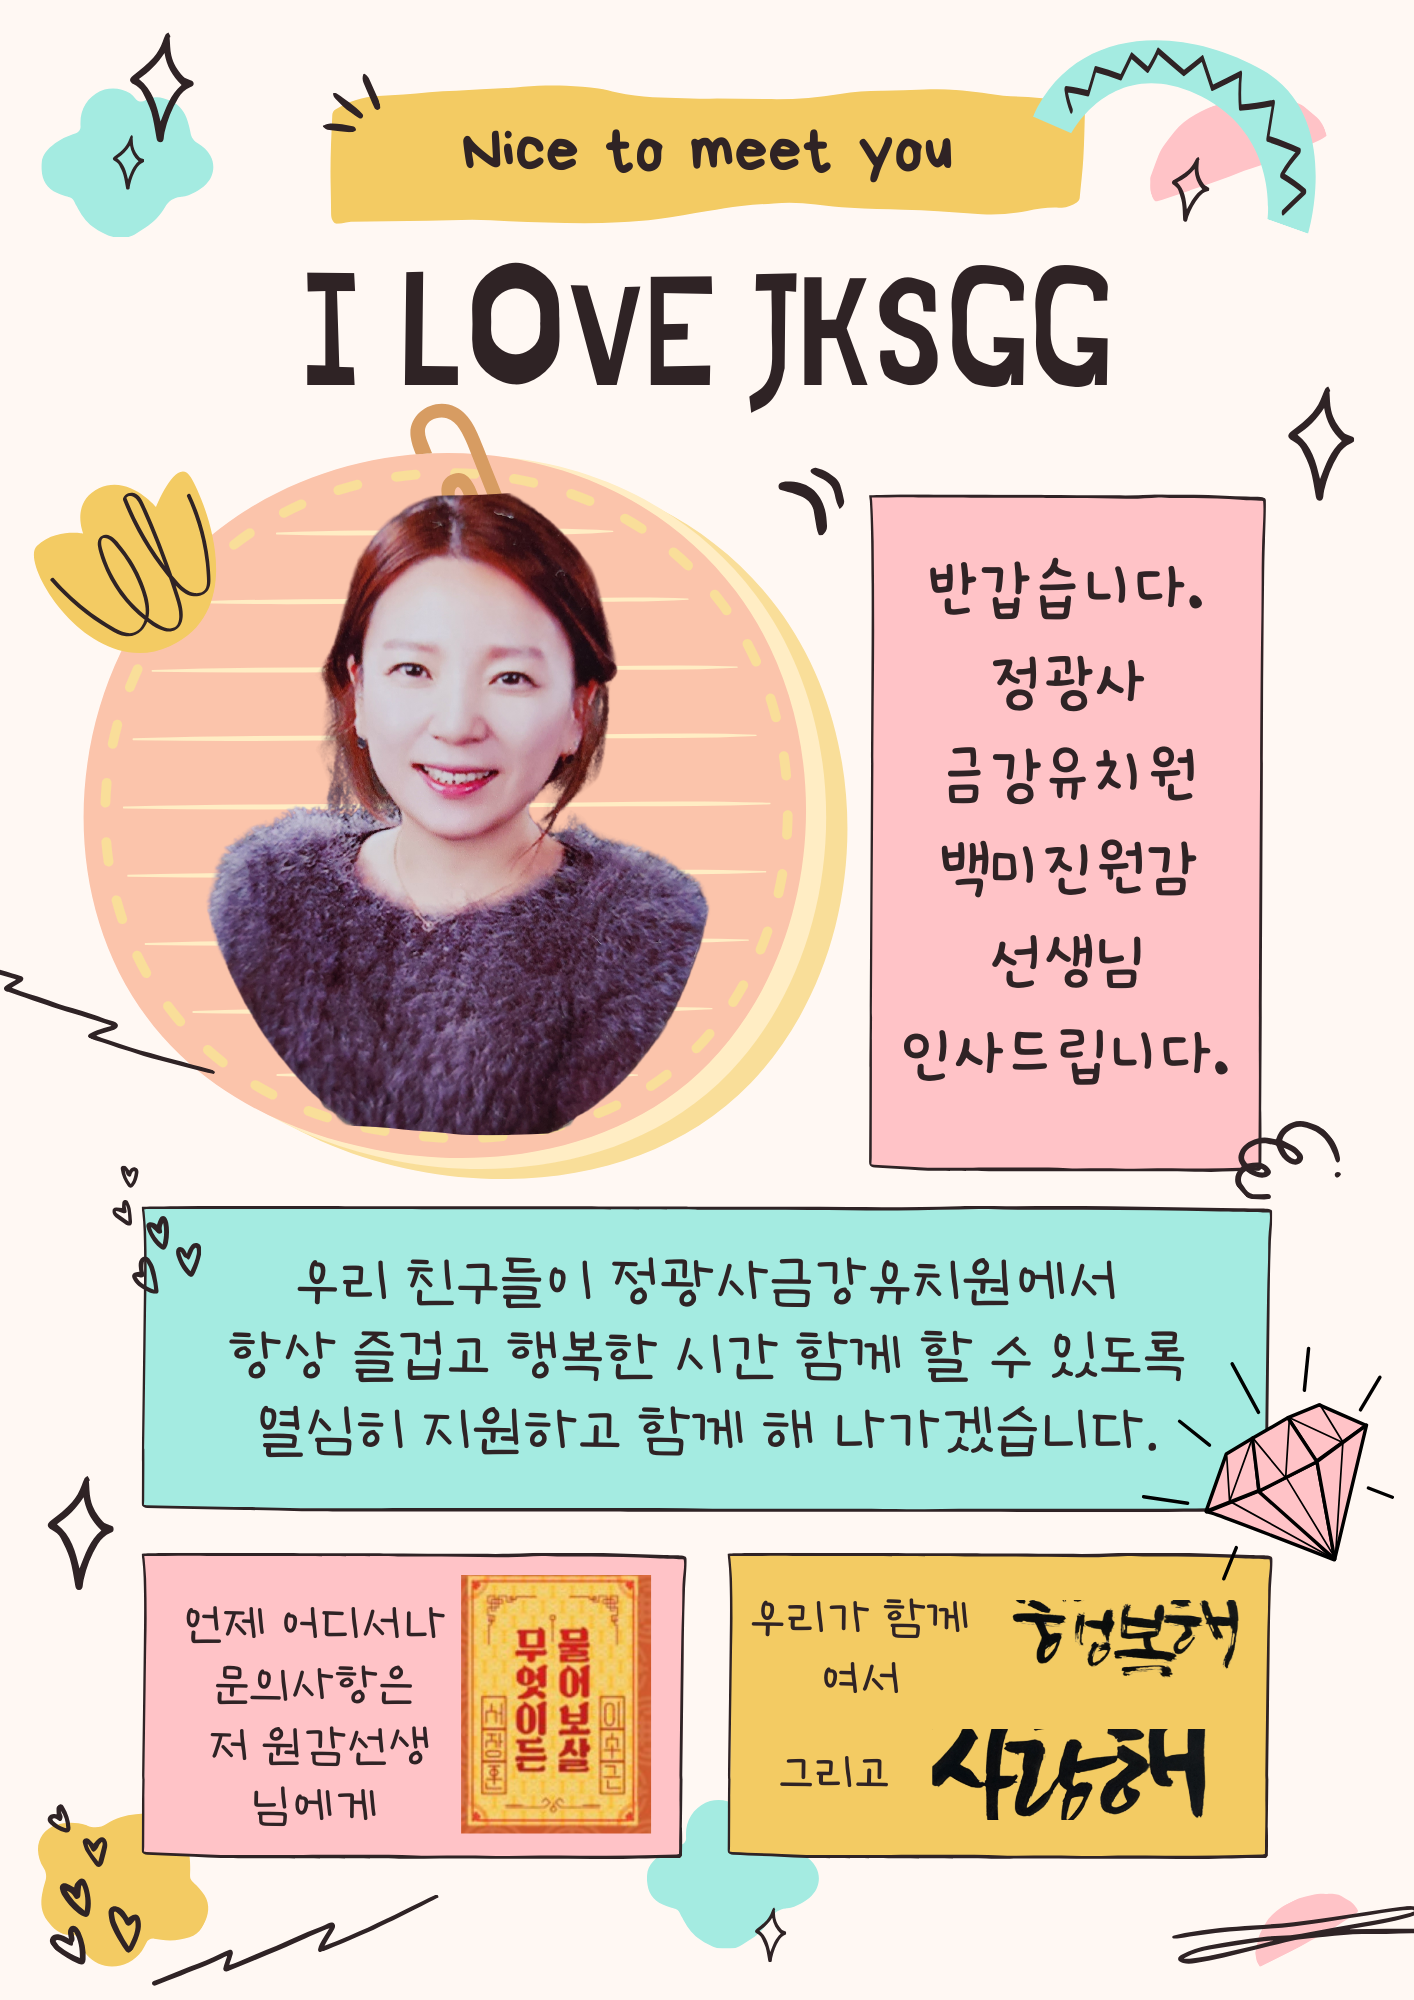 Nice to meet you
I LOVE JKSGG
반갑습니다.
정광사
금강유치원
백미진원감
선생님
인사드립니다.
우리 친구들이 정광사금강유치원에서
항상 즐겁고 행복한 시간 함께 할 수 있도록
열심히 지원하고 함께 해 나가겠습니다.
언제 어디서나
문의사항은
저 원감선생
님에게
무엇이든
물어보살
서장훈
이수근
우리가 함께
여서
행복해
그리고
사랑해